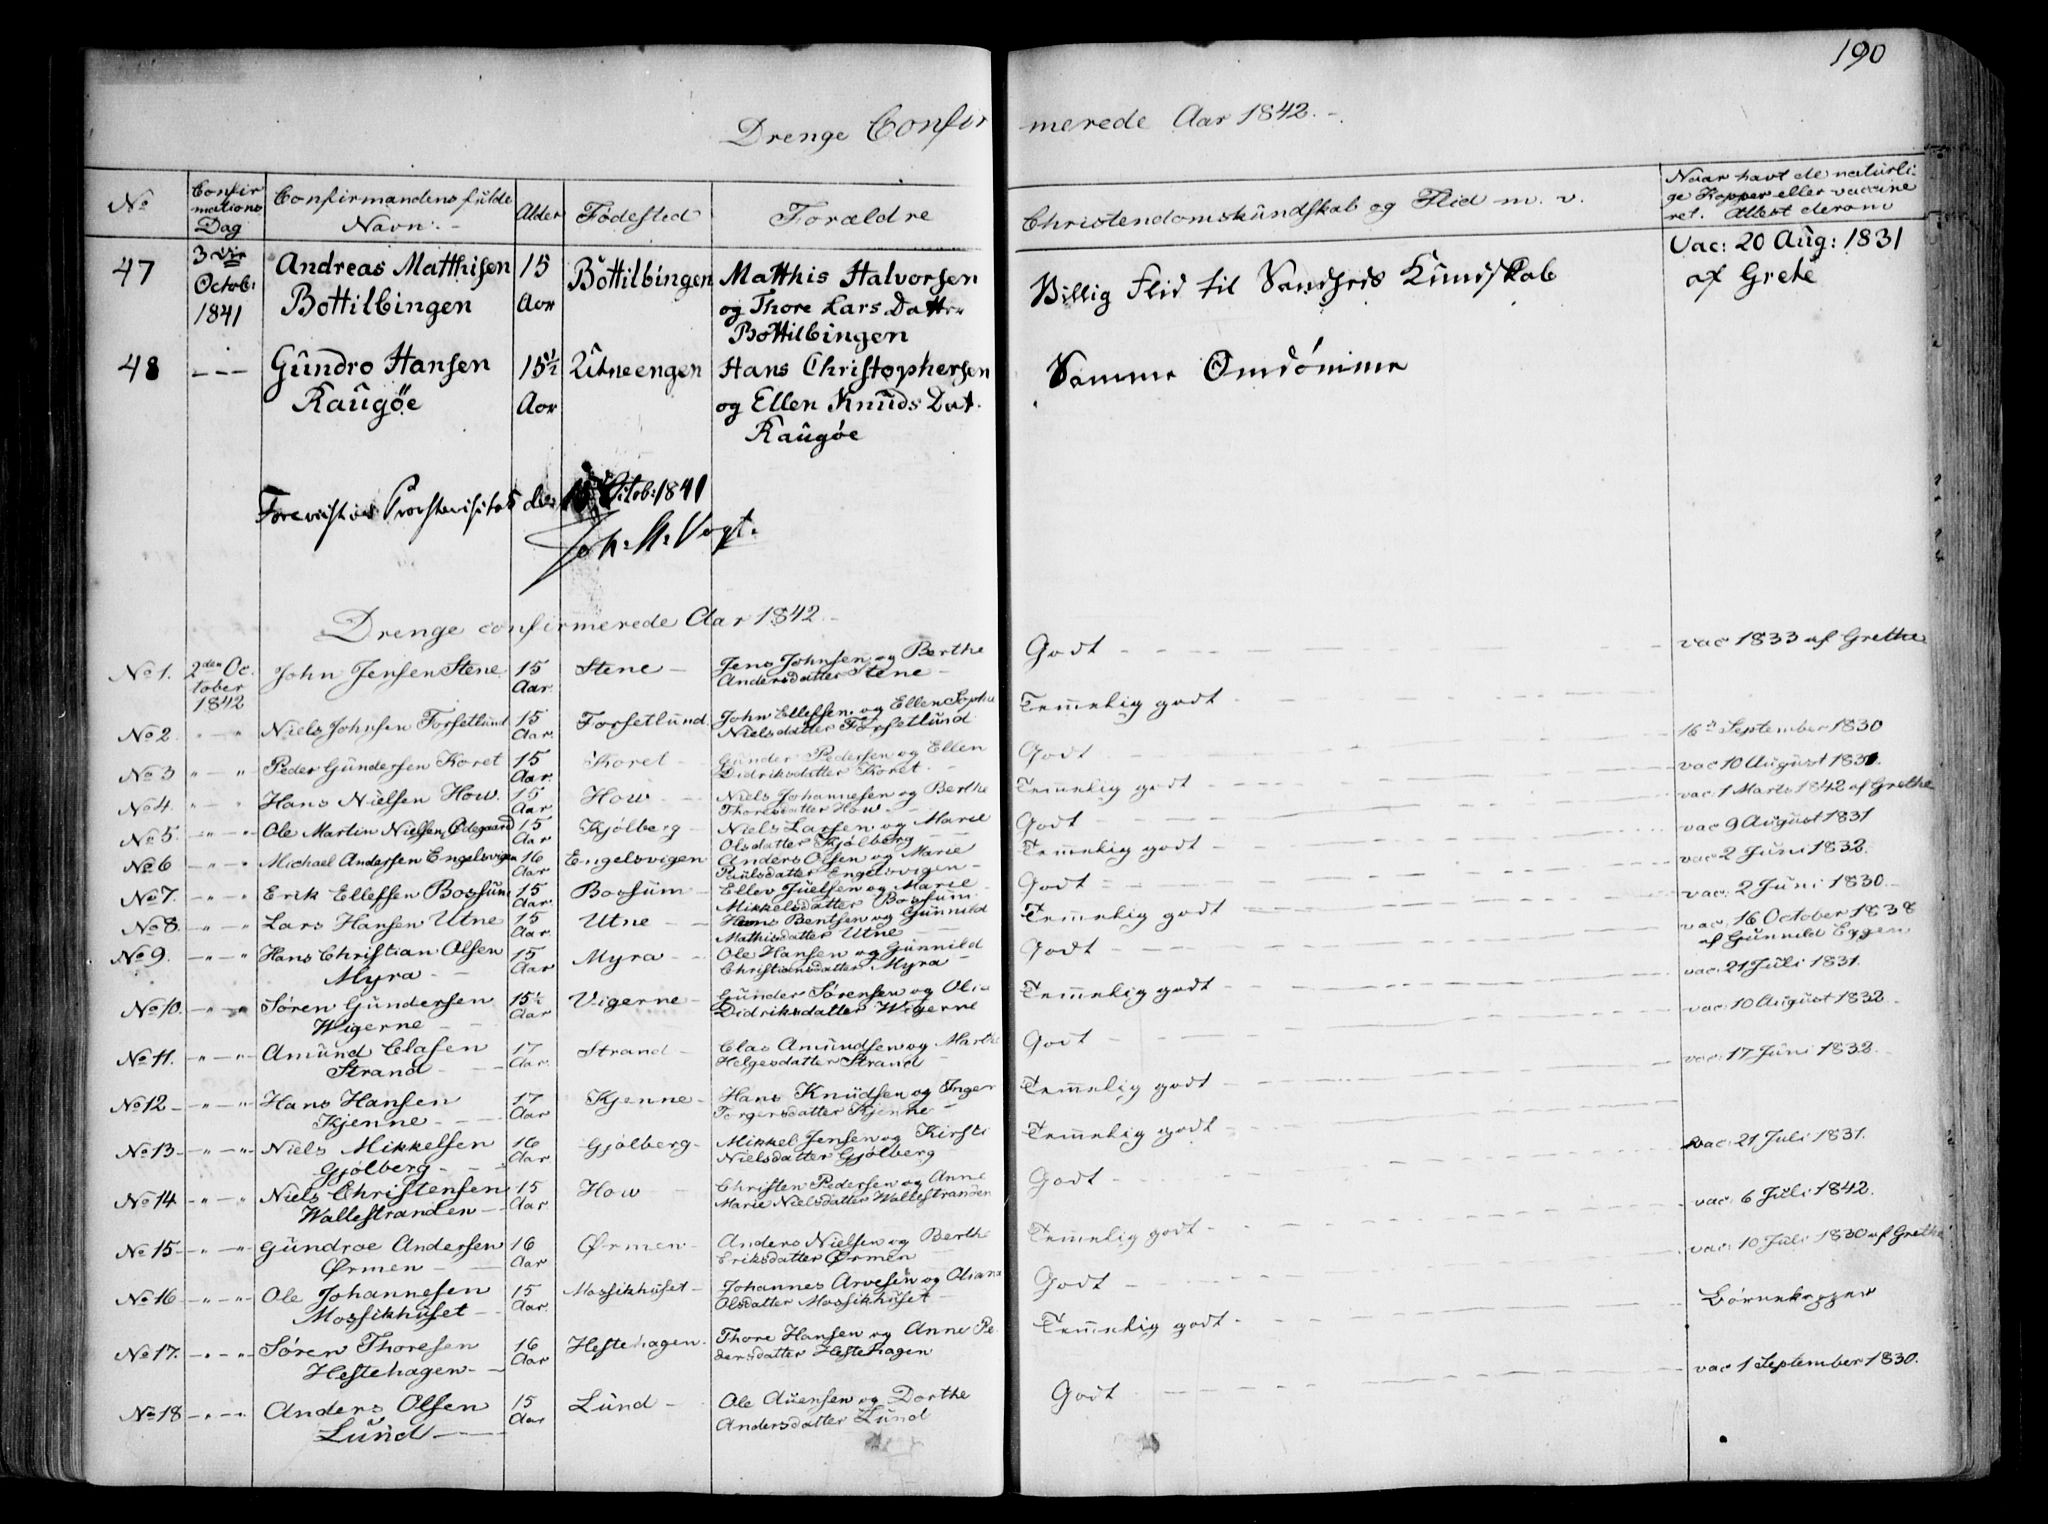 190
Drenge Confirmerede Aar 1842.
No
Confirmations Dag
Confirmandens fulde Navn
Alder
Fødested
Forældre
Christendomskundskab og Flid m. v.
Naar havt de naturlige Kopper eller vaccineret. Attest derom
47 3die Octob: 1841 Andreas Matthisen Bottilbingen 15 Aar Bottilbingen Matthis Halvorsen og Thore Lars Dattr Bottilbingen Billig Flid til Kundskab Vac: 20 Aug: 1831 af Grete
48 — — Gundro Hansen Raugøe 15½ Aar Utneengen Hans Christophersen og Ellen Knuds Dat. Raugøe Samme Omdømme
Octob: 1841
Joh. Vogt.
Drenge confirmerede Aar 1842
No 1. 2den October 1842 John Jensen Stene 15 Aar Stene Jens Johnsen og Berthe Andersdatter Stene Godt vac 1833 af Grethe
No 2. " " Niels Johnsen Forsetlund 15 Aar Forsetlund John Ellefsen og Ellen Sophie Nielsdatter Forsetlund Temmelig godt 16d September 1830
No 3 " " Peder Gundersen Koret 15 Aar Koret Gunder Pedersen og Ellen Didriksdatter Koret Godt vac 10 August 1831
No 4. " " Hans Nielsen How. 15 Aar How Niels Johannesen og Berthe Thoresdatter How Temmelig godt vac 1 Marts 1842 af Grethe
No 5. " " Ole Martin Nielsen Ødegaard 15 Aar Kjølberg Niels Larsen og Marie Olsdatter Kjølberg Godt vac 9 August 1831
No 6 " " Michael Andersen Engelsvigen 16 Aar Engelsvigen Anders Olsen og Marie Paulsdatter Engelsvigen Temmelig godt vac 2 Juni 1832.
No 7. " " Erik Ellefsen Bossum 15 Aar Bossum Ellev Juelsen og Marie Mikkelsdatter Bossum Godt vac: 2 Juni 1830
No 8. " " Lars Hansen Utne 15 Aar Utne Hans Bentsen og Gunnild Mathisdatter Utne Temmelig godt vac. 16 October 1838 af Gunnild Eggen
No 9. " " Hans Christian Olsen Myra 15 Aar Myra Ole Hansen og Gunnild Christiansdatter Myra Godt vac: 21 Juli 1831.
No 10. " " Søren Gundersen Wigerne 15½ Aar Vigerne Gunder Sørensen og Olia Didriksdatter Wigerne Temmelig godt vac: 10 August 1832
No 11. " " Amund Clasen Strand 17 Aar Strand Clas Amundsen og Marthe Helgesdatter Strand Godt vac: 17 Juni 1832
No 12 " " Hans Hansen Kjenne 17 Aar Kjenne Hans Knudsen og Inger Torgersdatter Kjenne Temmelig godt
No 13 " " Niels Mikkelsen Gjølberg 16 Aar Gjølberg Mikkel Jensen og Kirsti Nielsdatter Gjølberg Temmelig godt vac: 21 Juli 1831.
No 14 " " Niels Christensen Wallestranden 15 Aar How Christen Pedersen og Anne Marie Nielsdatter Wallestranden Godt vac: 6 Juli 1842.
No 15 " " Gundroe Andersen Ørmen 16 Aar Ørmen Anders Nielsen og Berthe Eriksdatter Ørmen Temmelig godt vac: 10 Juli 1830 af Grethe
No 16 " " Ole Johannesen Mossikhuset 15 Aar Mossikhuset Johannes Arvesen og Oliana Olsdatter Mossikhuset Godt Børnekopper
No 17. " " Søren Thoresen Hestehagen 16 Aar Hestehagen Thore Hansen og Anne Pedersdatter Hestehagen Temmelig godt vac 1 September 1830.
No 18 " " Anders Olsen Lund 15 Aar Lund Ole Auensen og Dorthe Andersdatter Lund Godt